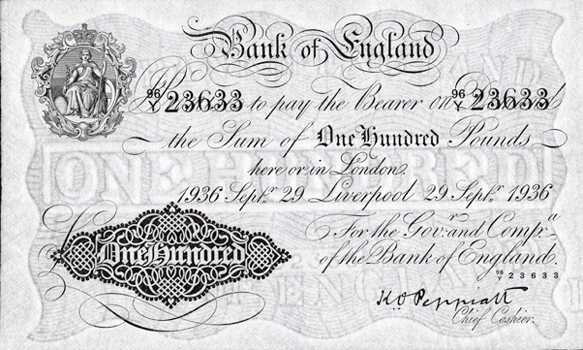 Bank of England
96/Y 23633 to pay the Bearer on 96/Y 23633
the Sum of One Hundred Pounds
here or in London
1936 Septr. 29 Liverpool 29 Septr. 1936
For the Govr. and Compa.
of the Bank of England.
One Hundred
96/Y 23633
K.O. Peppiatt
Chief Cashier.
ONE HUNDRED